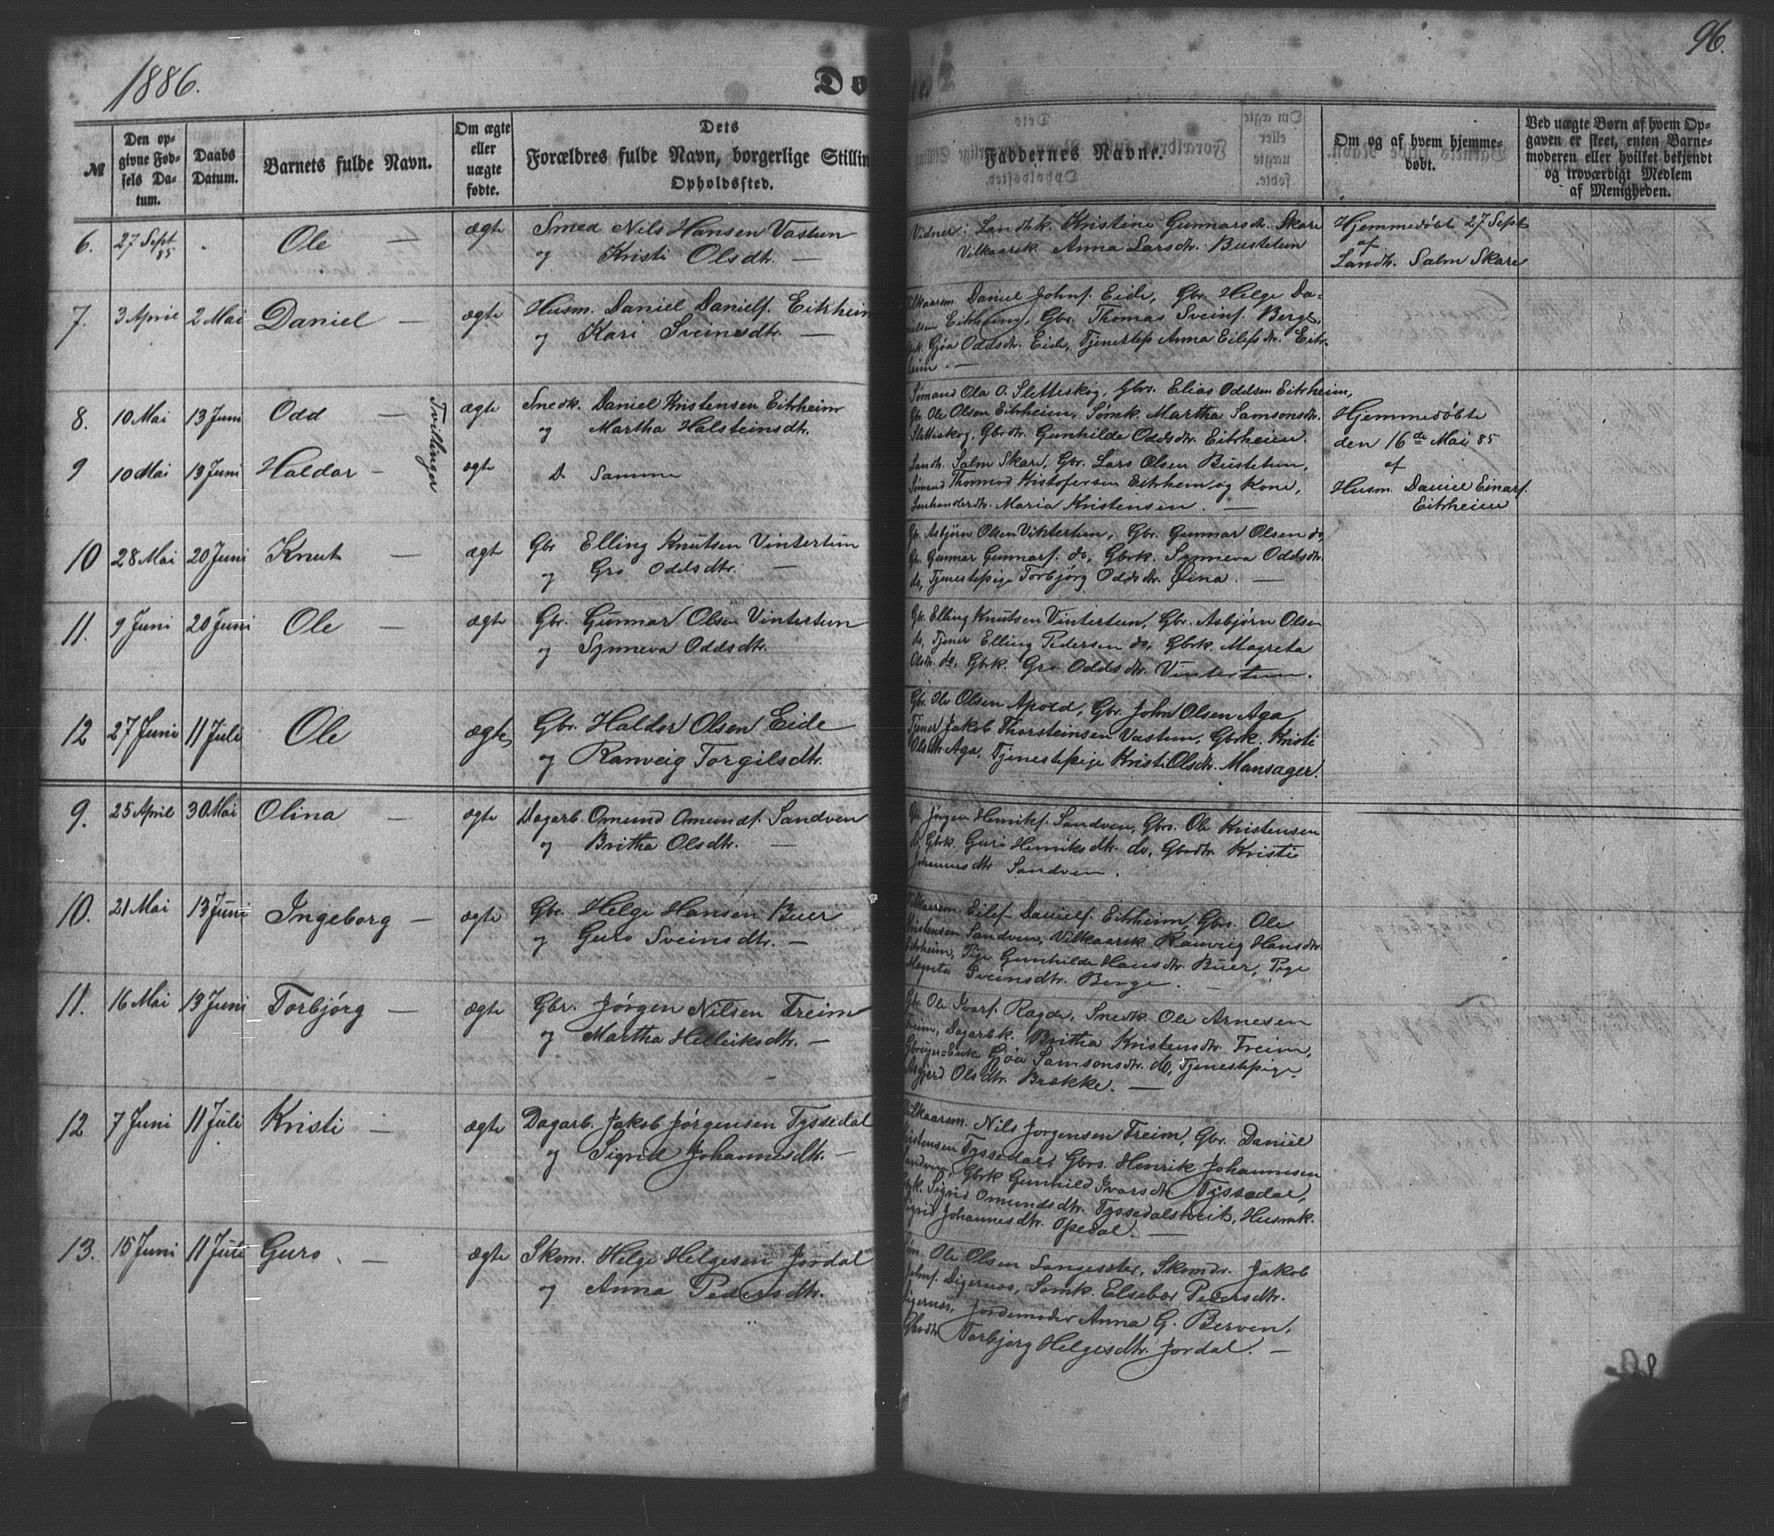 1886.
96.
Do
№
Den op-
givne Fød-
sels Da-
tum.
Daabs
Datum.
Barnets fulde Navn.
Om ægte
eller
uægte
fødte.
Dets
Forældres fulde Navn, borgerlige Stillin
Opholdssted.
Faddernes Navne.
Om og af hvem hjemme-
døbt.
Ved uægte Børn af hvem Op-
gaven er skeet, enten Barne-
moderen eller hvilket bekjendt
og troværdigt Medlem
af Menigheden.
6. 27 Sept 85 Ole — ægte Smed Nils Hansen Vastun
og Kristi Olsdtr. —
Vidner: Landhk. Kristine Gunnarsdr. Skare
Vilkaarsk. Anna Larsdtr. Bustetun
Hjemmedøbt 27 Sept
af
Landh. Salm Skare
7. 3 April 2 Mai Daniel — ægte Husm. Daniel Danielss. Eitrheim
og Kari Sveinsdtr. —
Vilkaarsm. Daniel Johns. Eide, Gbr. Helge Da-
nielsen Eitrheim, Gbr. Thomas Sveins. Berge,
Gjøa Oddsdtr. Eide, Tjenestep. Anna Eilefsdtr. Eitr-
heim. —
8. 10 Mai 13 Juni Odd — Tvillinger ægte Snedk. Daniel Kristensen Eitrheim
og Martha Halsteinsdtr.
Sømand Ola O. Slettiskog, Gbr. Elias Oddsen Eitrheim,
Gbr. Ole Olsen Eitrheim, Sømk. Martha Samsonsdtr.
Slettiskog, Gbrdtr. Gunhilda Oddsdtr. Eitrheim.
Hjemmedøbte
den 16de Mai 85
af
Husm. Daniel Einars.
Eitrheim
9 10 Mai 13 Juni Haldor — ægte D Samme
Landh. Salm Skare, Gbr. Lars Olsen Bustetun,
Sømand Thormod Kristofersen Eitrheim og Kone,
Maria Kristensen. —
10 28 Mai 20 Juni Knut — ægte Gbr Elling Knutsen Vintertun
og Gro Oddsdtr. —
Gbr. Asbjørn Olsen Vintertun, Gbr. Gunnar Olsen do,
Gbr. Gunnar Gunnars. do, Gbrk. Synneva Oddsdtr.
do, Tjenestepige Torbjørg Oddsdtr. Øina. —
11. 9 Juni 20 Juni Ole — ægte Gbr. Gunnar Olsen Vintertun
og Synneva Oddsdtr.
Gbr. Elling Knutsen Vintertun, Gbr. Asbjørn Olsen
do, Tjener Elling Pedersen do, Gbrk. Magreta
Olsdtr. do, Gbrk. Gro Oddsdtr. Vintertun.
12 27 Juni 11 Juli Ole ægte Gbr. Haldor Olsen Eide
og Ranveig Torgilsdtr.
Gbr. Ole Olsen Apold, Gbr. John Olsen Aga
Tjener Jakob Thorsteinsen Vastun, Gbrk. Kristi
Olsdtr Aga, Tjenestepige Kristi Olsdtr. Mansager.
9. 25 April 30 Mai Olina — ægte Dagarb. Omund Omunds. Sandven
og Britha Olsdtr. —
Gbr. Jørgen Henriks. Sandven, Gbrs. Ole Kristensen
do, Gbrk. Guri Henriksdtr. do, Gbrdtr. Kristi
Johannesdtr Sandven.
10. 21 Mai 13 Juni Ingeborg — ægte Gbr. Helge Hansen Buer
og Guro Sveinsdtr. —
Vilkaarsm. Eilef Daniels. Eitrheim, Gbrs. Ole
Kristensen Sandven, Vilkaarsk. Ranveig Hansdtr.
Eitrheim, Pige Gunhilda Hansdtr. Buer, Pige
Magreta Sveinsdtr. Berge. —
11. 16 Mai 13 Juni Torbjørg — ægte Gbr. Jørgen Nilsen Freim
og Martha Helleiksdtr. —
Gbr. Ole Ivars. Ragde, Snedk. Ole Arnesen
Freim, Dagarbk. Britha Kristensdtr. Freim,
Gbruger-Enke Gjøa Samsonsdtr. do, Tjenestepige
Olsdtr. Brakke. —
12 7 Juni 11 Juli Kristi — ægte Dagarb. Jakob Jørgensen Tyssedal
og Sigrid Johannesdtr. —
Vilkaarsm. Nils Jørgensen Freim, Gbr. Daniel
Kristensen Tyssedal, Gbrs. Henrik Johannesen
Sandven, Gbrk Gunhild Ivarsdtr. Tyssedal,
Sigrid Omundsdtr. Tyssedalstveit, Husmk.
Sigrid Johannesdtr. Opedal. —
13. 15 Juni 11 Juli Guro. — ægte Skom. Helge Helgesen Jordal
og Anna Pedersdtr.
Ole Olsen Langesæter, Skomdr. Jakob
Johns. Digernes, Sømk. Elsebør Pedersdtr.
Digernes, Jordemoder Anna G. Berven,
Gbrdtr Torbjørg Helgesdtr. Jordal. —